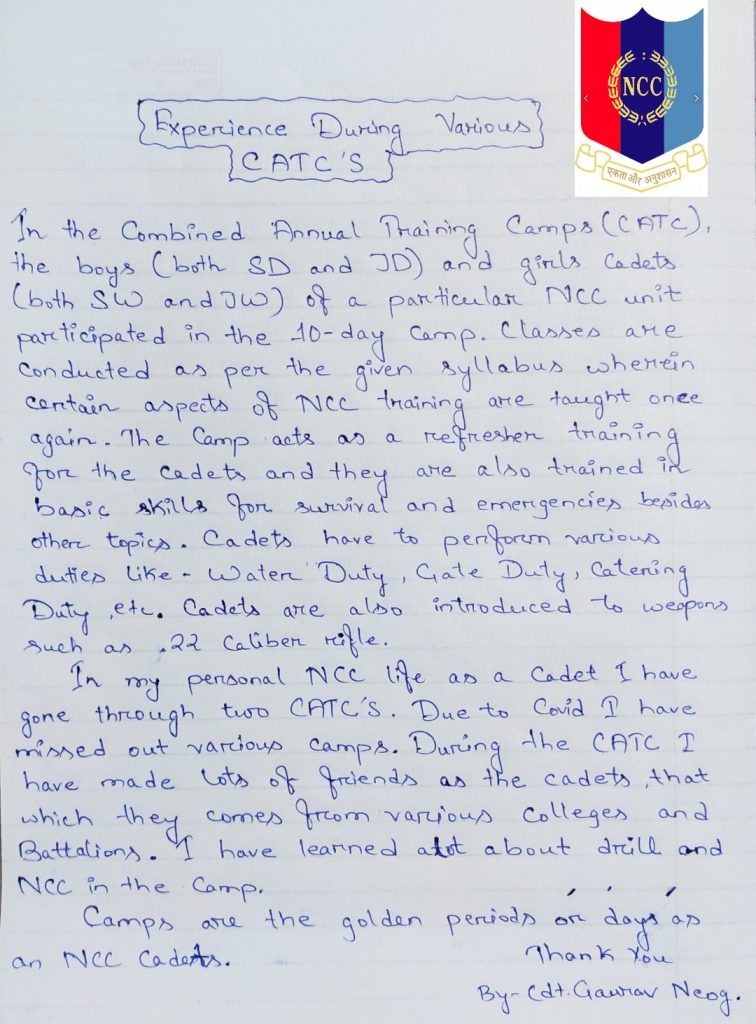 NCC
एकता और अनुशासन
Experience During Various
CATC'S
In the Combined Annual Training Camps (CATC),
the boys (both SD and JD) and girls Cadets
(both SW and JW) of a particular NCC unit
participated in the 10-day Camp. Classes are
conducted as per the given syllabus wherein
certain aspects of NCC training are taught once
again. The Camp acts as a refresher training
for the cadets and they are also trained in
basic skills for survival and emergencies besides
other topics. Cadets have to perform various
duties like - Water Duty, Gate Duty, Catering
Duty, etc. Cadets are also introduced to weapons
such as .22 Caliber rifle.
In my personal NCC life as a Cadet I have
gone through two CATC'S. Due to Covid I have
missed out various camps. During the CATC I
have made lots of friends as the cadets, that
which they comes from various Colleges and
Battalions. I have learned alot about drill and
NCC in the Camp.
Camps are the golden periods or days as
an NCC Cadets.
Thank You
By- Cdt. Gaurav Neog.